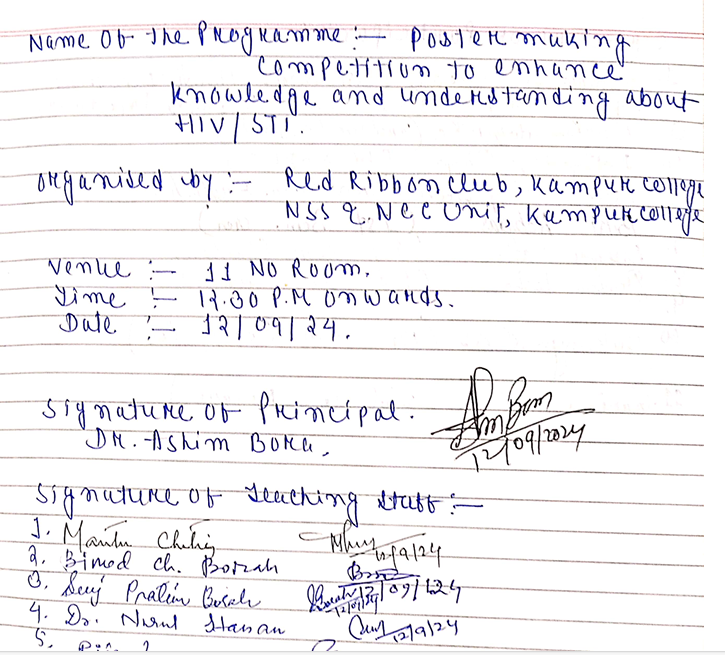 Name Of the Programme :- Poster making
Competition to enhance
knowledge and understanding about
HIV/STI.
Organised by :- Red Ribbon Club, Kampur College
NSS & NCC Unit, Kampur College
Venue :- 11 NO ROOM.
Time :- 12.30 P.M onwards.
Date :- 12/09/24.
Signature of Principal.
12/09/2024
DR. Ashim Bora.
Signature of Teaching Staff :-
1.
12/9/24
2. Binod Ch. Borah
3. Pratim Borah 12/09/24
4. Dr. Nurul Hasan 12/9/24
5.